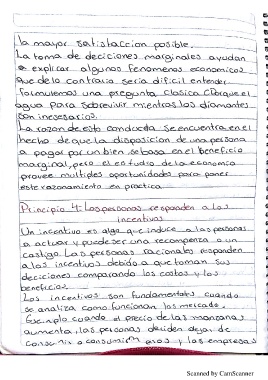 la mayor satisfaccion posible.
La toma de deciciones marginales ayudan
a explicar algunos fenomenos economicos
que de lo contrario seria dificil entender
formulemos una pregunta clasica ¿Porque el
agua para sobrevivir mientras los diamantes
son inesesarios.
La razon de esta conducta se encuentra en el
hecho de que la disposicion de una persona
a pagar por un bien se basa en el beneficio
marginal, pero el estudio de la economia
provee multiples oportunidades para poner
este razonamiento en practica
Principio 4: Las personas responden a los
incentivos
Un incentivo es algo que induce a las personas
a actuar y puede ser una recompensa o un
castigo. Las personas racionales responden
a los incentivos debido a que toman sus
decisiones comparando los costos y los
beneficios.
Los incentivos son fundamentales cuando
se analiza como funcionan los mercados.
Ejemplo cuando el precio de las manzanas
aumenta, las personas deciden dejar de
y las empresas
Scanned by CamScanner